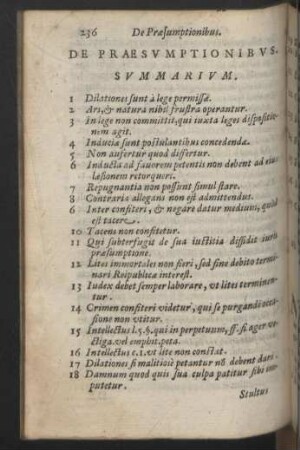 236 De Præsumptionibus.
DE PRAESVMPTIONIBVS.
SVMMARIVM.
1 Dilationes sunt à lege permissæ.
2 Ars, & natura nihil frustra operantur.
3 In lege non committit, qui iuxta leges dispositio-
nem agit.
4 Induciæ sunt postulantibus concedendæ.
5 Non aufertur quod differtur.
6 Inducta ad fauorem petentis non debent ad eius
læsionem retorqueri.
7 Repugnantia non possunt simul stare.
8 Contraria allegans non est admittendus.
6 Inter confiteri, & negare datur medium, quod
est tacere.
10 Tacens non confitetur.
11 Qui subterfugit de sua iustitia diffidit iuris
præsumptione.
12 Lites immortales non fieri, sed fine debito termi-
nari Reipublicæ interest.
13 Iudex debet semper laborare, vt lites terminen-
tur.
14 Crimen confiteri videtur, qui se purgandi occa-
sione non vtitur.
15 Intellectus l.5.§. qui in perpetuum, ff. si ager ve-
ctiga. vel emphit. peta.
16 Intellectus c.1. vt lite non constat.
17 Dilationes si malitiosè petantur nõ debent dari.
18 Damnum quod quis sua culpa patitur sibi im-
putetur.
Stultus